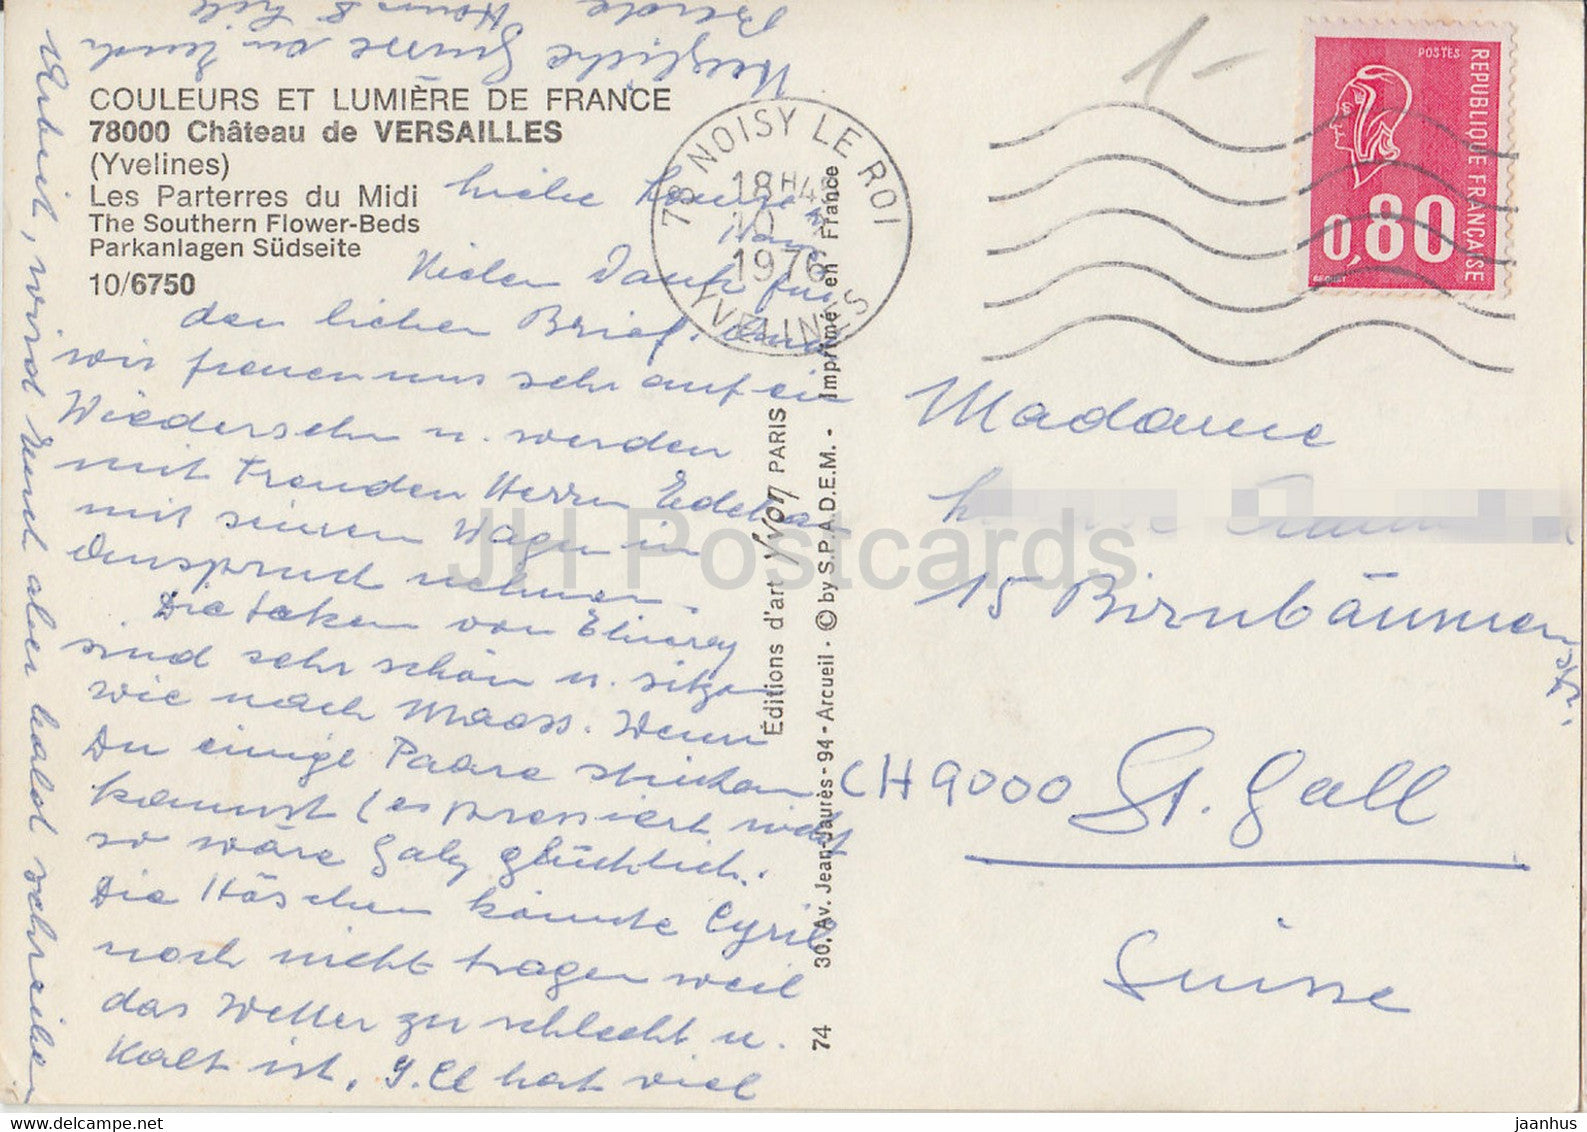 COULEURS ET LUMIÈRE DE FRANCE
78000 Château de VERSAILLES
(Yvelines)
Les Parterres du Midi
The Southern Flower-Beds
Parkanlagen Südseite
10/6750
Liebe
Vielen Dank für
den lieben Brief. Auch
wir freuen uns sehr auf ein
Wiedersehn u. werden
mit Freuden Herrn
mit seinen Wagen in
Anspruch nehmen.
Die Jaken von
sind sehr schön u. sitzen
wie nach Maass. Wenn
Du einige Paare stricken
kannst (es pressiert nicht
so wäre Gaby glücklich.
Die Höschen konnte Cyril
noch nicht tragen weil
das Wetter zu schlecht u.
kalt ist. J. Cl hat viel
Arbeit, wird Euch aber bald schreiben
Herzliche Grüsse an Euch
Beide
78 NOISY LE ROI
18H4
10
1976
YVELINES
Éditions d'art Yvon PARIS
74 30, Av. Jean-Jaurès - 94 - Arcueil - © by S.P.A.D.E.M. - Imprimé en France
1-
POSTES
REPUBLIQUE FRANÇAISE
0,80
BEQUET
Madame
15 Birnbäumen
str.
CH 9000 St. Gall
Suisse
JH Postcards
jaanhus